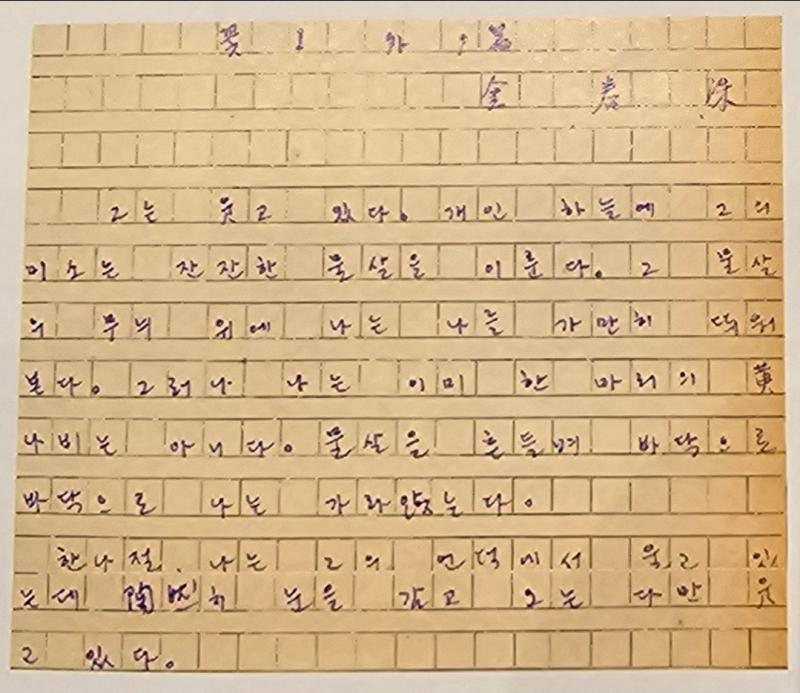 꽃 I
金春洙
그는 웃고 있다. 개인 하늘에 그의
미소는 잔잔한 물살을 이룬다. 그 물살
의 무늬 위에 나는 나를 가만히 띄워
본다. 그러나 나는 이미 한 마리의 黃
나비는 아니다. 물살을 흔들며 바닥으로
바닥으로 나는 가라앉는다.
한나절, 나는 그의 언덕에서 울고 있
는데 陶然히 눈을 감고 그는 다만 웃
고 있다.